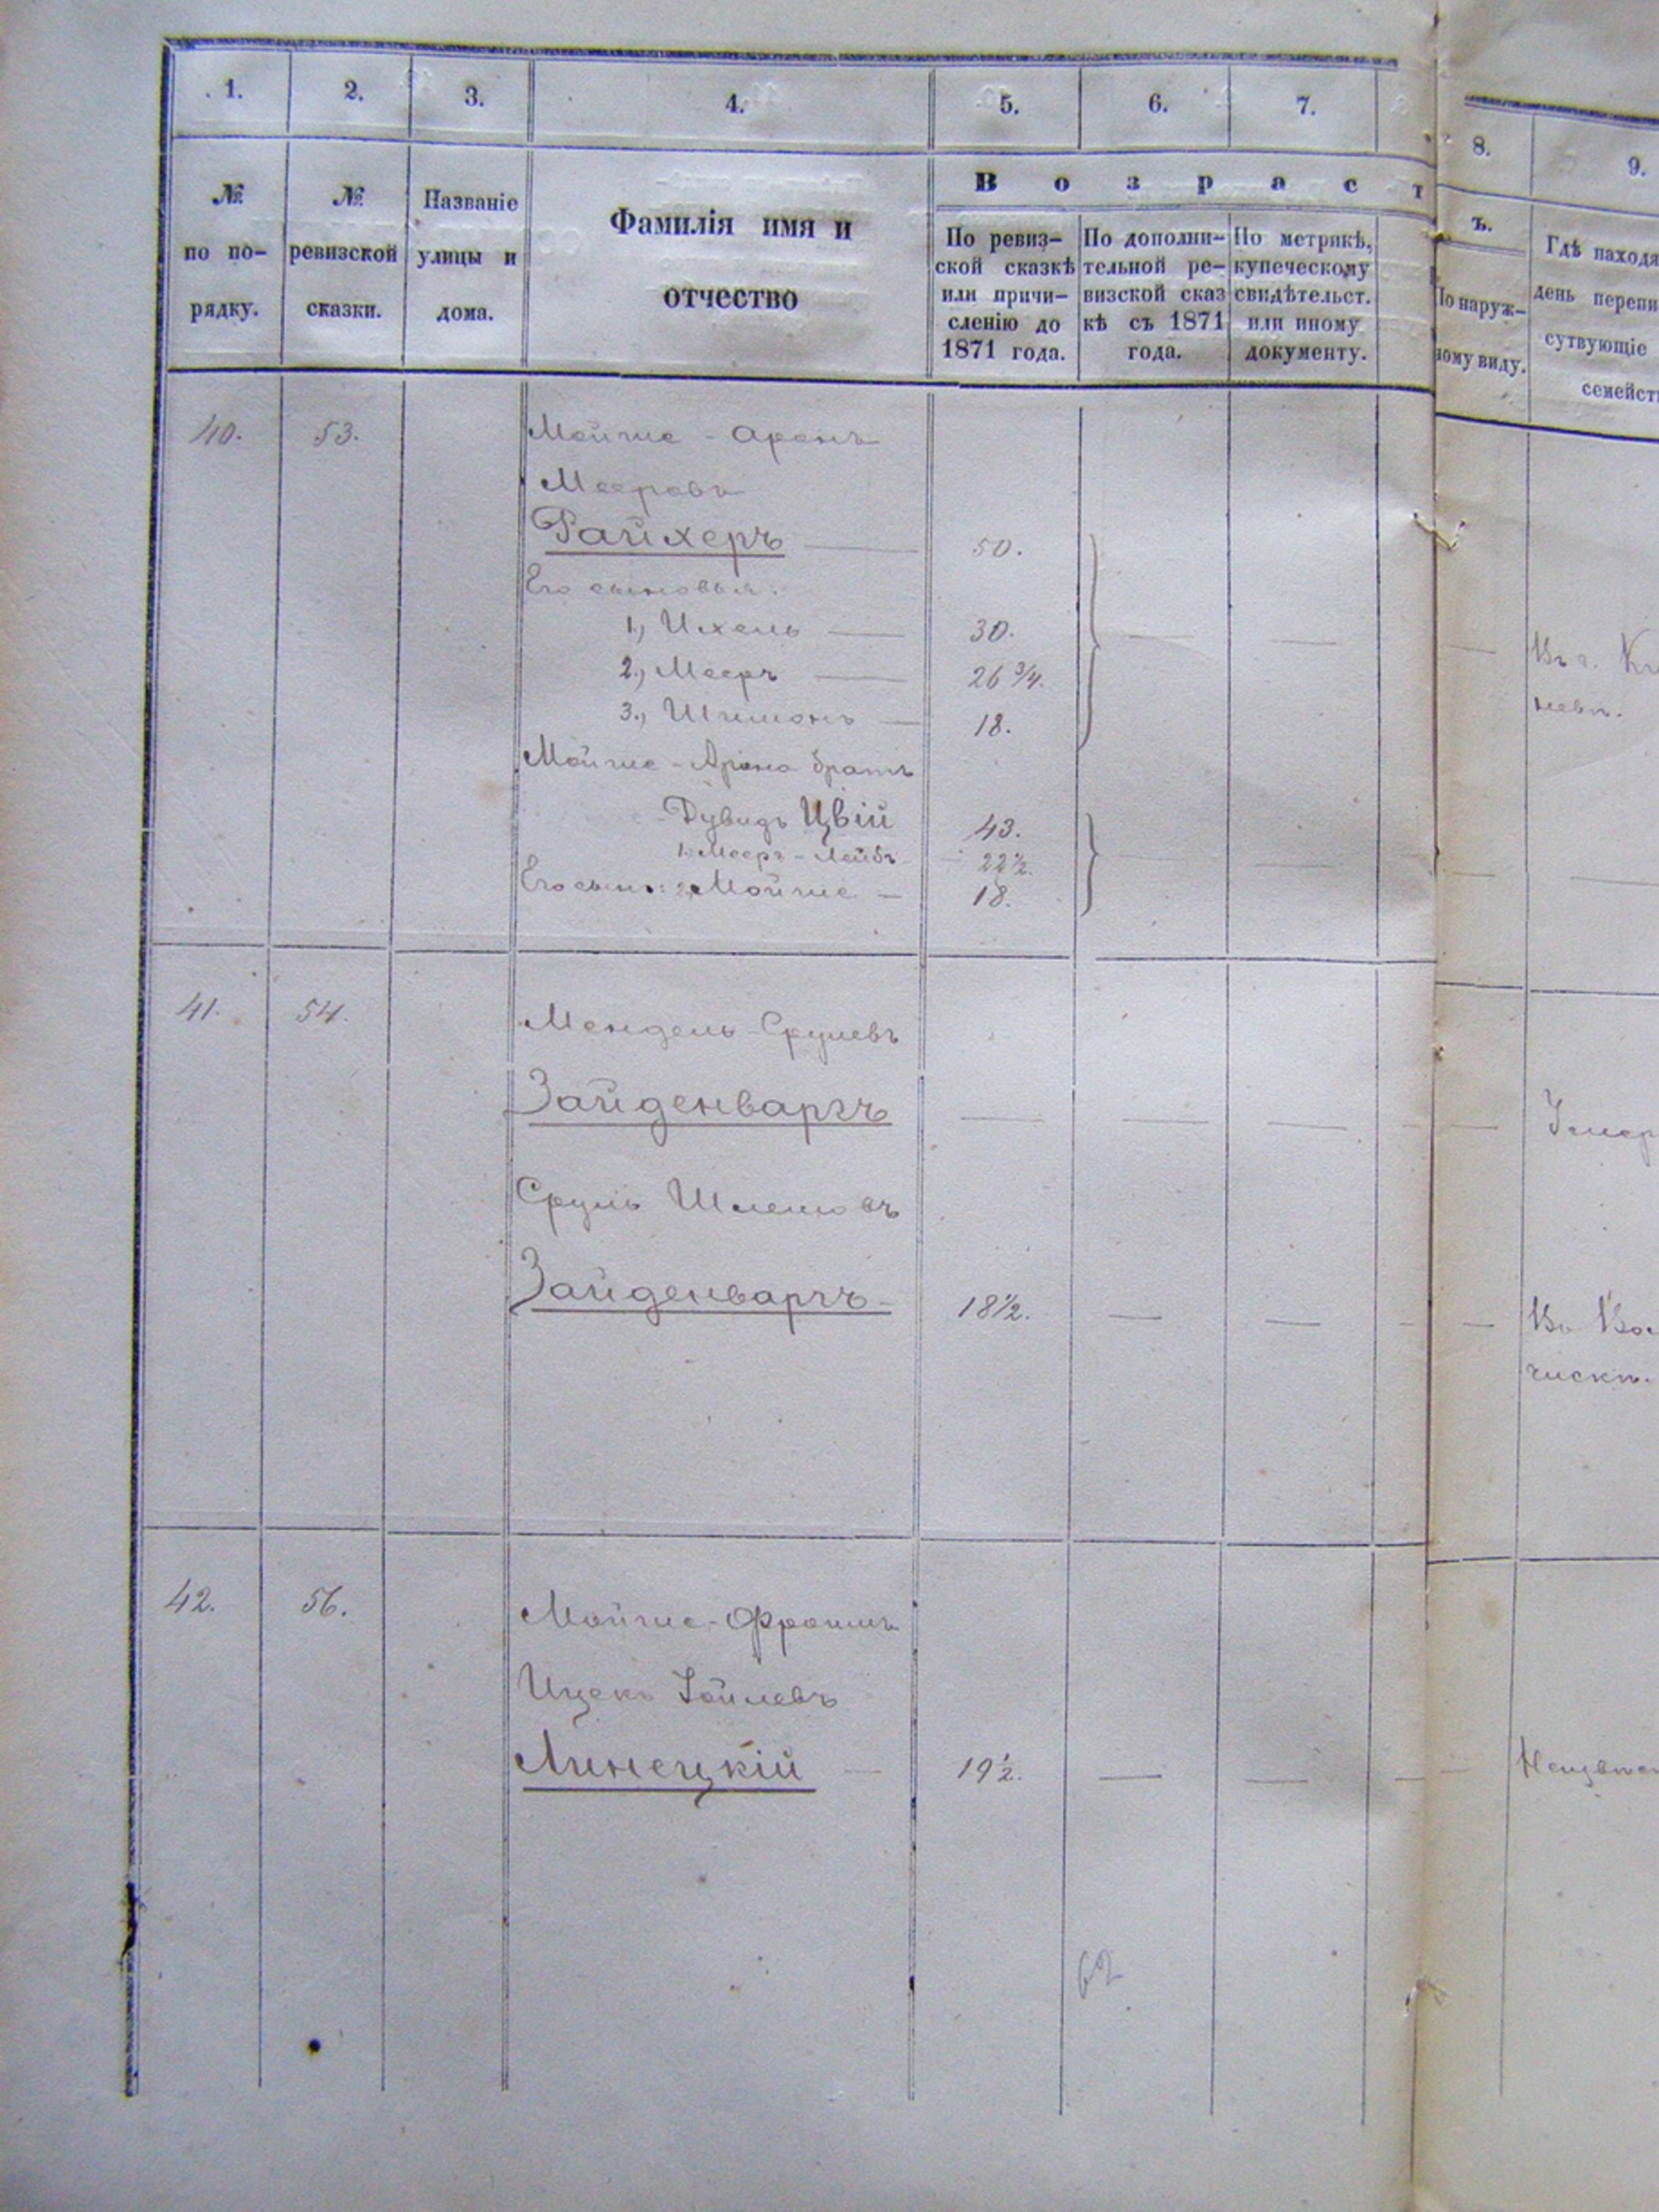 1. 2. 3. 4. 5. 6. 7.
8. 9.
№ по по-рядку.
№ ревизской сказки.
Названіе улицы и дома.
Фамилія имя и отчество
В о з р а с т
ъ.
По ревиз-
ской сказкѣ
или причи-
сленію до
1871 года.
По дополни-
тельной ре-
визской сказ
кѣ съ 1871
года.
По метрикѣ,
купеческому
свидѣтельст.
или иному
документу.
По наруж-
ному виду.
Гдѣ находя
день перепи
сутвующіе
семейст
40. 53. Мойше - Аронъ
Мееровъ
Райхеръ 50.
Его сыновья:
1., Ихель 30.
2., Мееръ 26 3/4.
3., Шимонъ 18.
Мойше - Арона братъ
Дувидъ Цвій 43.
1. Мееръ - Лейбъ 22 1/2.
Его сын.: 2, Мойше - 18.
невѣ.
41. 54. Мендель Срулевъ
Зайденваргъ
Умер
Сруль Шлемовъ
Зайденваргъ 18 1/2.
чискѣ.
42. 56. Мойше - Фроимъ
Ицекъ Іойлевъ
Линецкій 19 1/2.
Неизвѣс
62